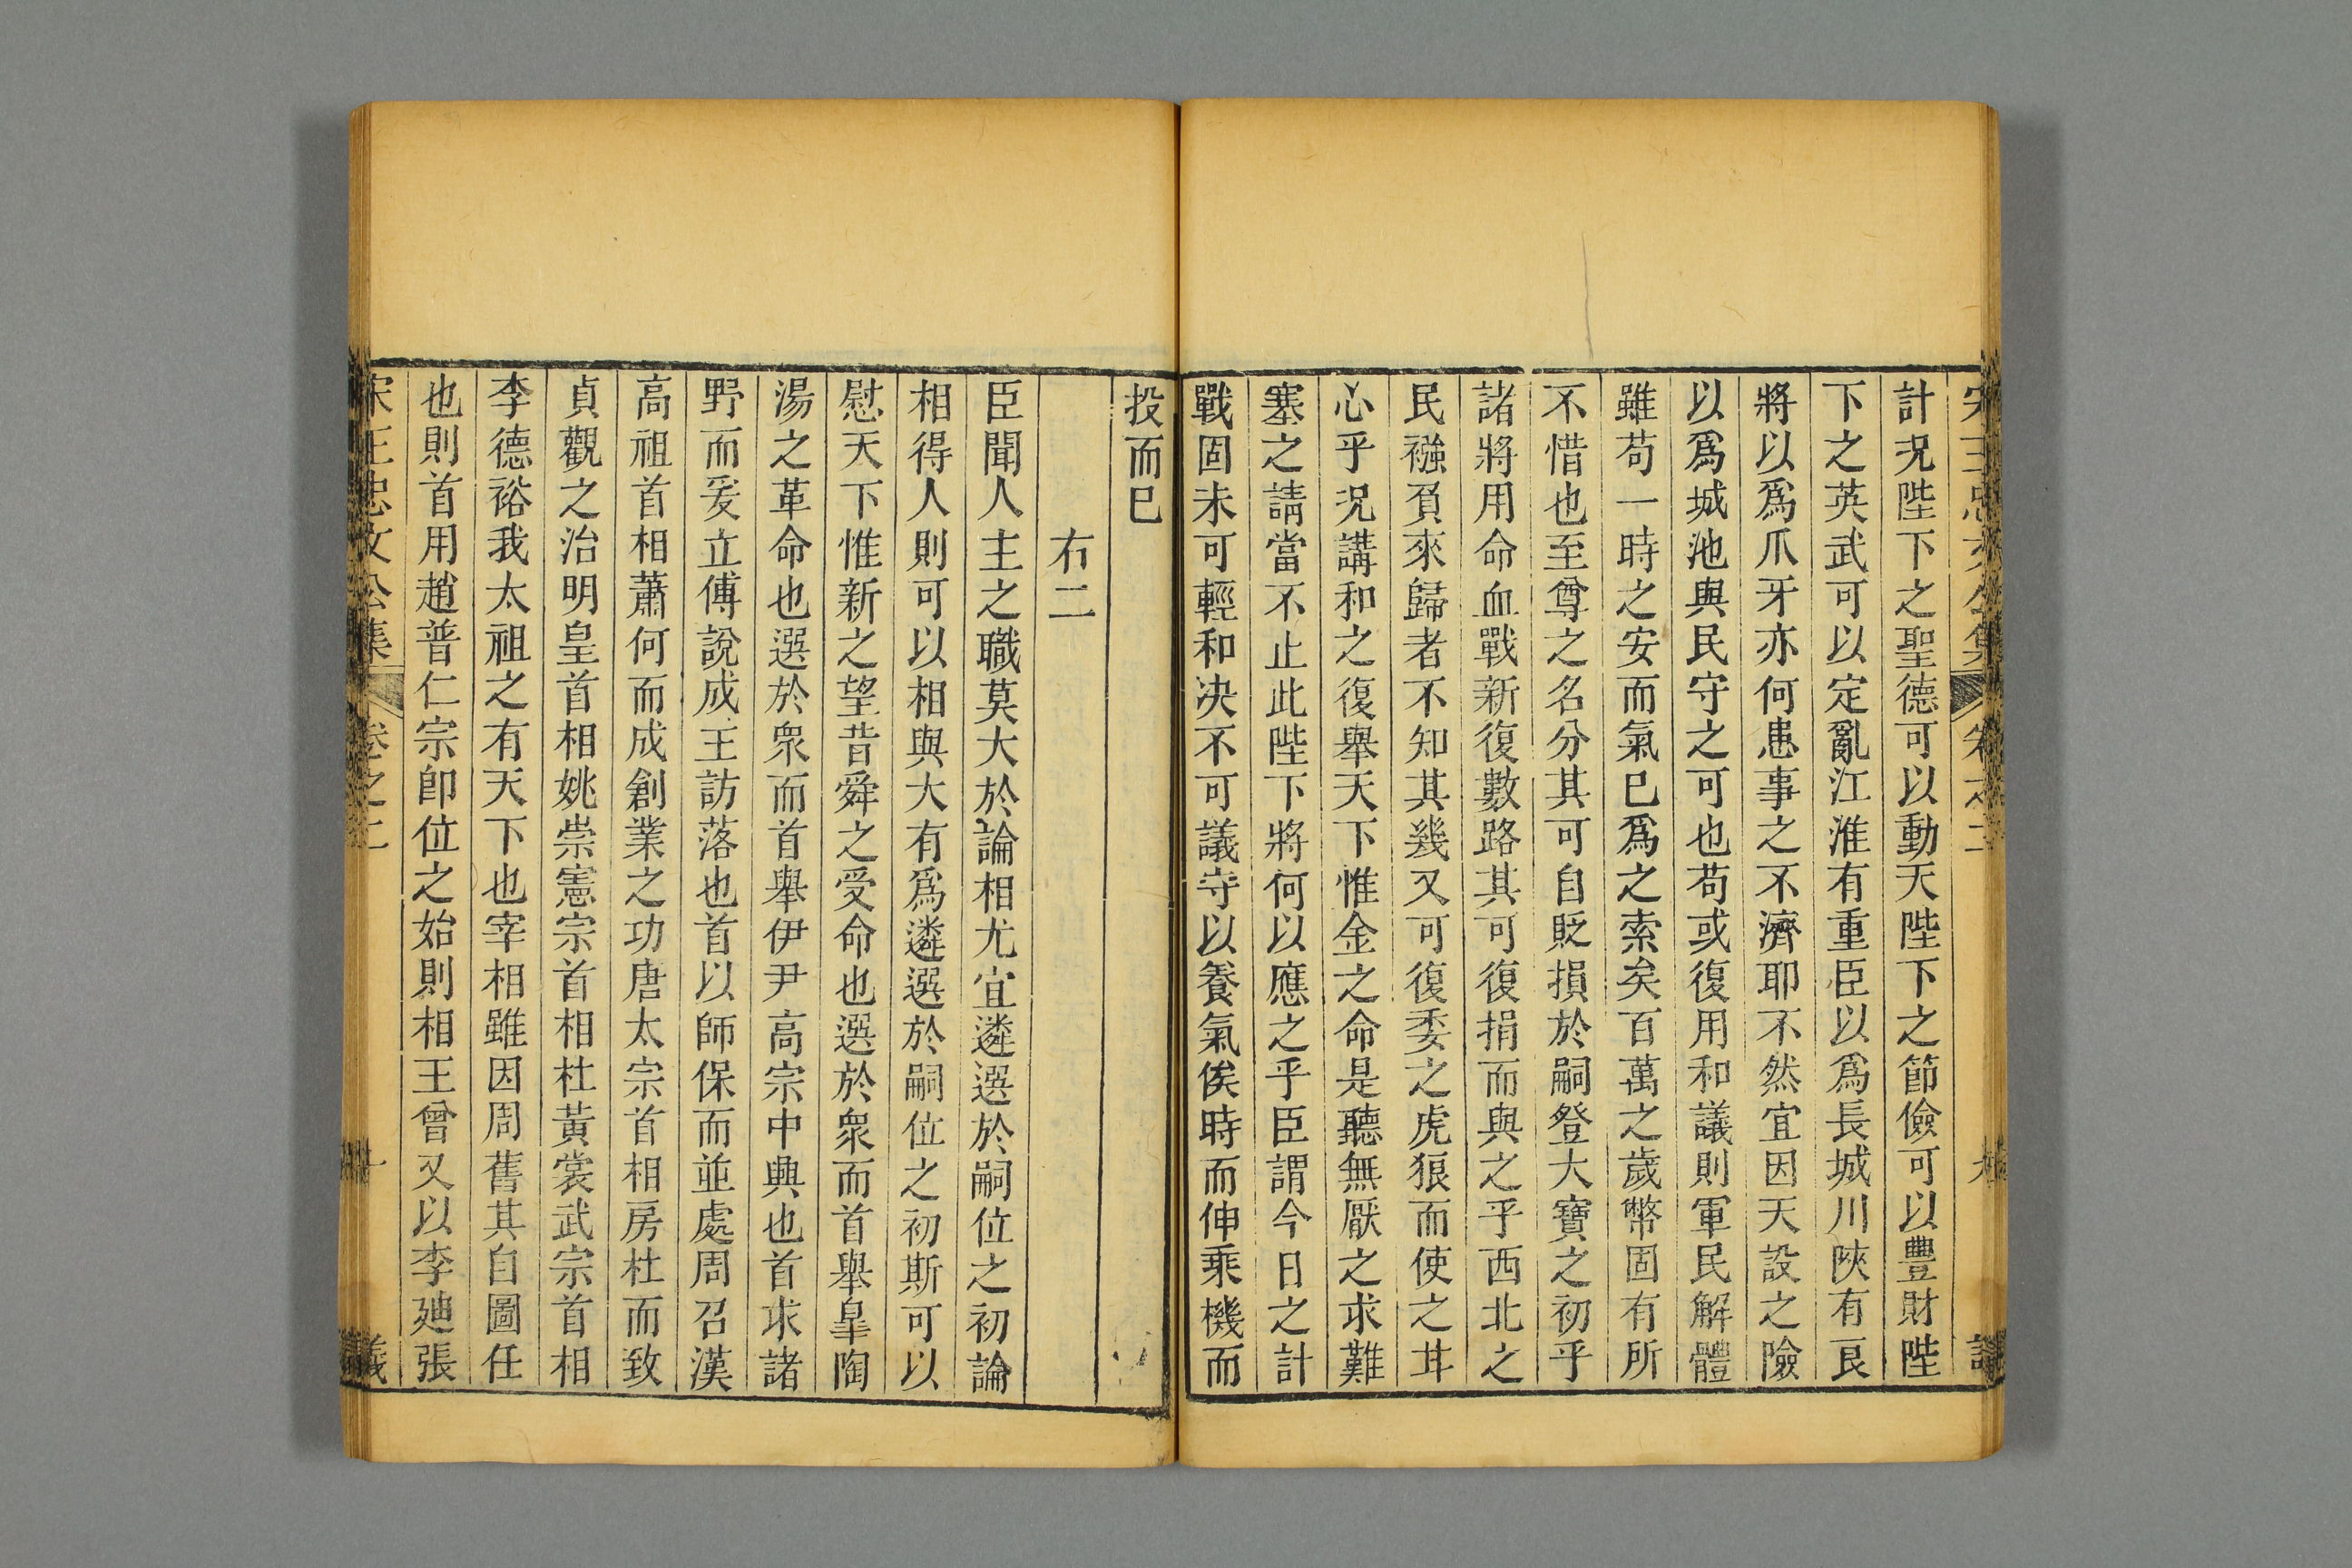 宋王忠文公集 卷之二 九 議
計況陛下之聖德可以動天陛下之節儉可以豐財陛
下之英武可以定亂江淮有重臣以爲長城川陝有良
將以爲爪牙亦何患事之不濟耶不然宜因天設之險
以爲城池與民守之可也苟或復用和議則軍民解體
雖苟一時之安而氣已爲之索矣百萬之歲幣固有所
不惜也至尊之名分其可自貶損於嗣登大寶之初乎
諸將用命血戰新復數路其可復捐而與之乎西北之
民襁負來歸者不知其幾又可復委之虎狼而使之甘
心乎況講和之復舉天下惟金之命是聽無厭之求難
塞之請當不止此陛下將何以應之乎臣謂今日之計
戰固未可輕和决不可議守以養氣俟時而伸乘機而
投而已
右二
臣聞人主之職莫大於論相尤宜遴選於嗣位之初論
相得人則可以相與大有爲遴選於嗣位之初斯可以
慰天下惟新之望昔舜之受命也選於衆而首舉皐陶
湯之革命也選於衆而首舉伊尹高宗中興也首求諸
野而爰立傅說成王訪落也首以師保而並處周召漢
高祖首相蕭何而成創業之功唐太宗首相房杜而致
貞觀之治明皇首相姚崇憲宗首相杜黃裳武宗首相
李德裕我太祖之有天下也宰相雖因周舊其自圖任
也則首用趙普仁宗卽位之始則相王曾又以李廸張
宋王忠文公集 卷之二 十 議